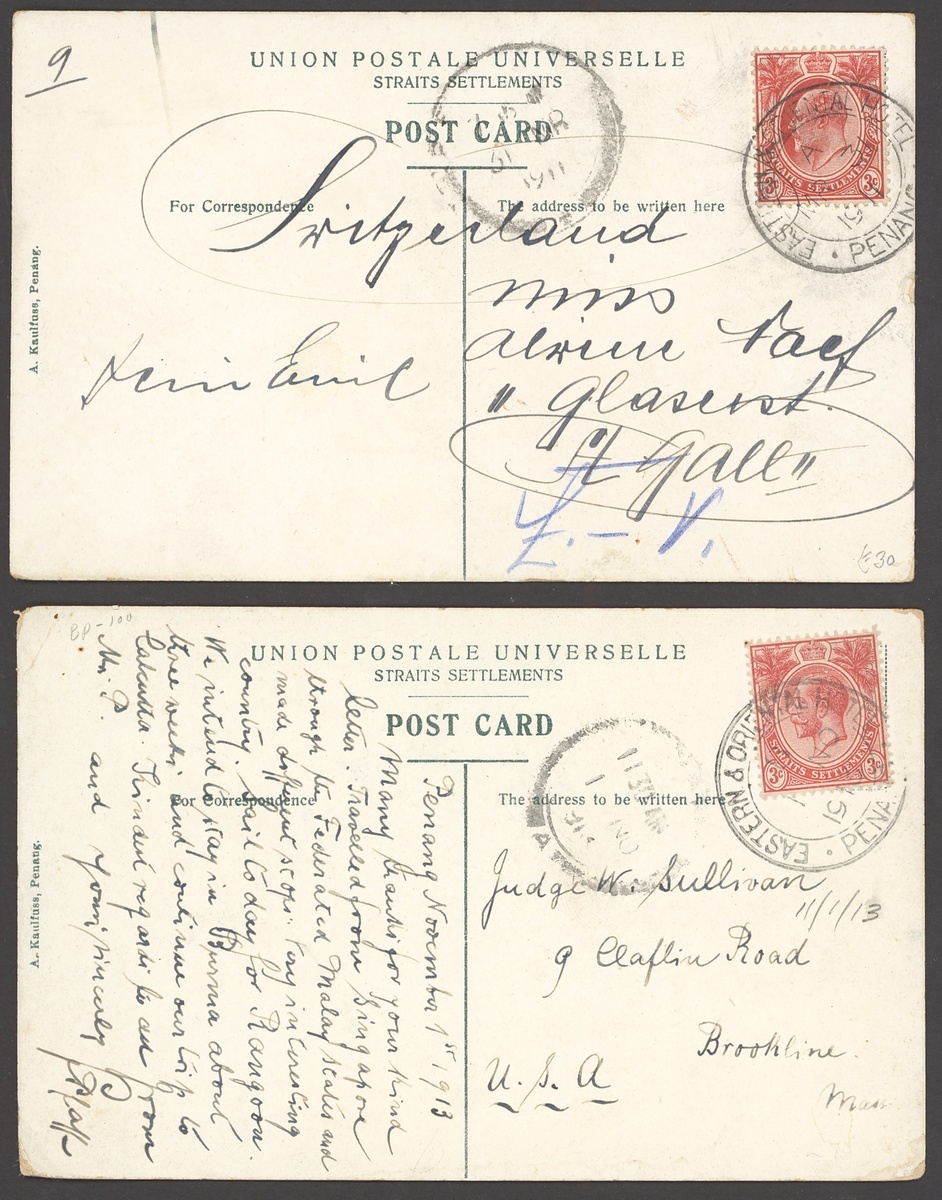 9
UNION POSTALE UNIVERSELLE
STRAITS SETTLEMENTS
POST CARD
For Correspondence
The address to be written here
A. Kaulfuss, Penang.
STRAITS SETTLEMENTS
3c 3c
HOTEL
EASTERN
PENANG
1911
Switzerland
Miss
Alwine
" Glaserst.
St Gall "
Dein Emil
£30
BP-100
UNION POSTALE UNIVERSELLE
STRAITS SETTLEMENTS
POST CARD
For Correspondence
The address to be written here
A. Kaulfuss, Penang.
STRAITS SETTLEMENTS
3c 3c
EASTERN & ORIENTAL
PENA
Penang November 1st 1913
Many thanks for your kind
letter. Travelled from Singapore
through the Federated Malay States and
made different stops. Very interesting
country. Said to day for Rangoon.
We intend to stay in Burma about
three weeks and continue our trip to
Calcutta. Kindest regards to all from
Mr. P. and yours sincerely
Judge W. Sullivan
11/1/13
9 Claflin Road
Brookline.
Mass
U. S. A